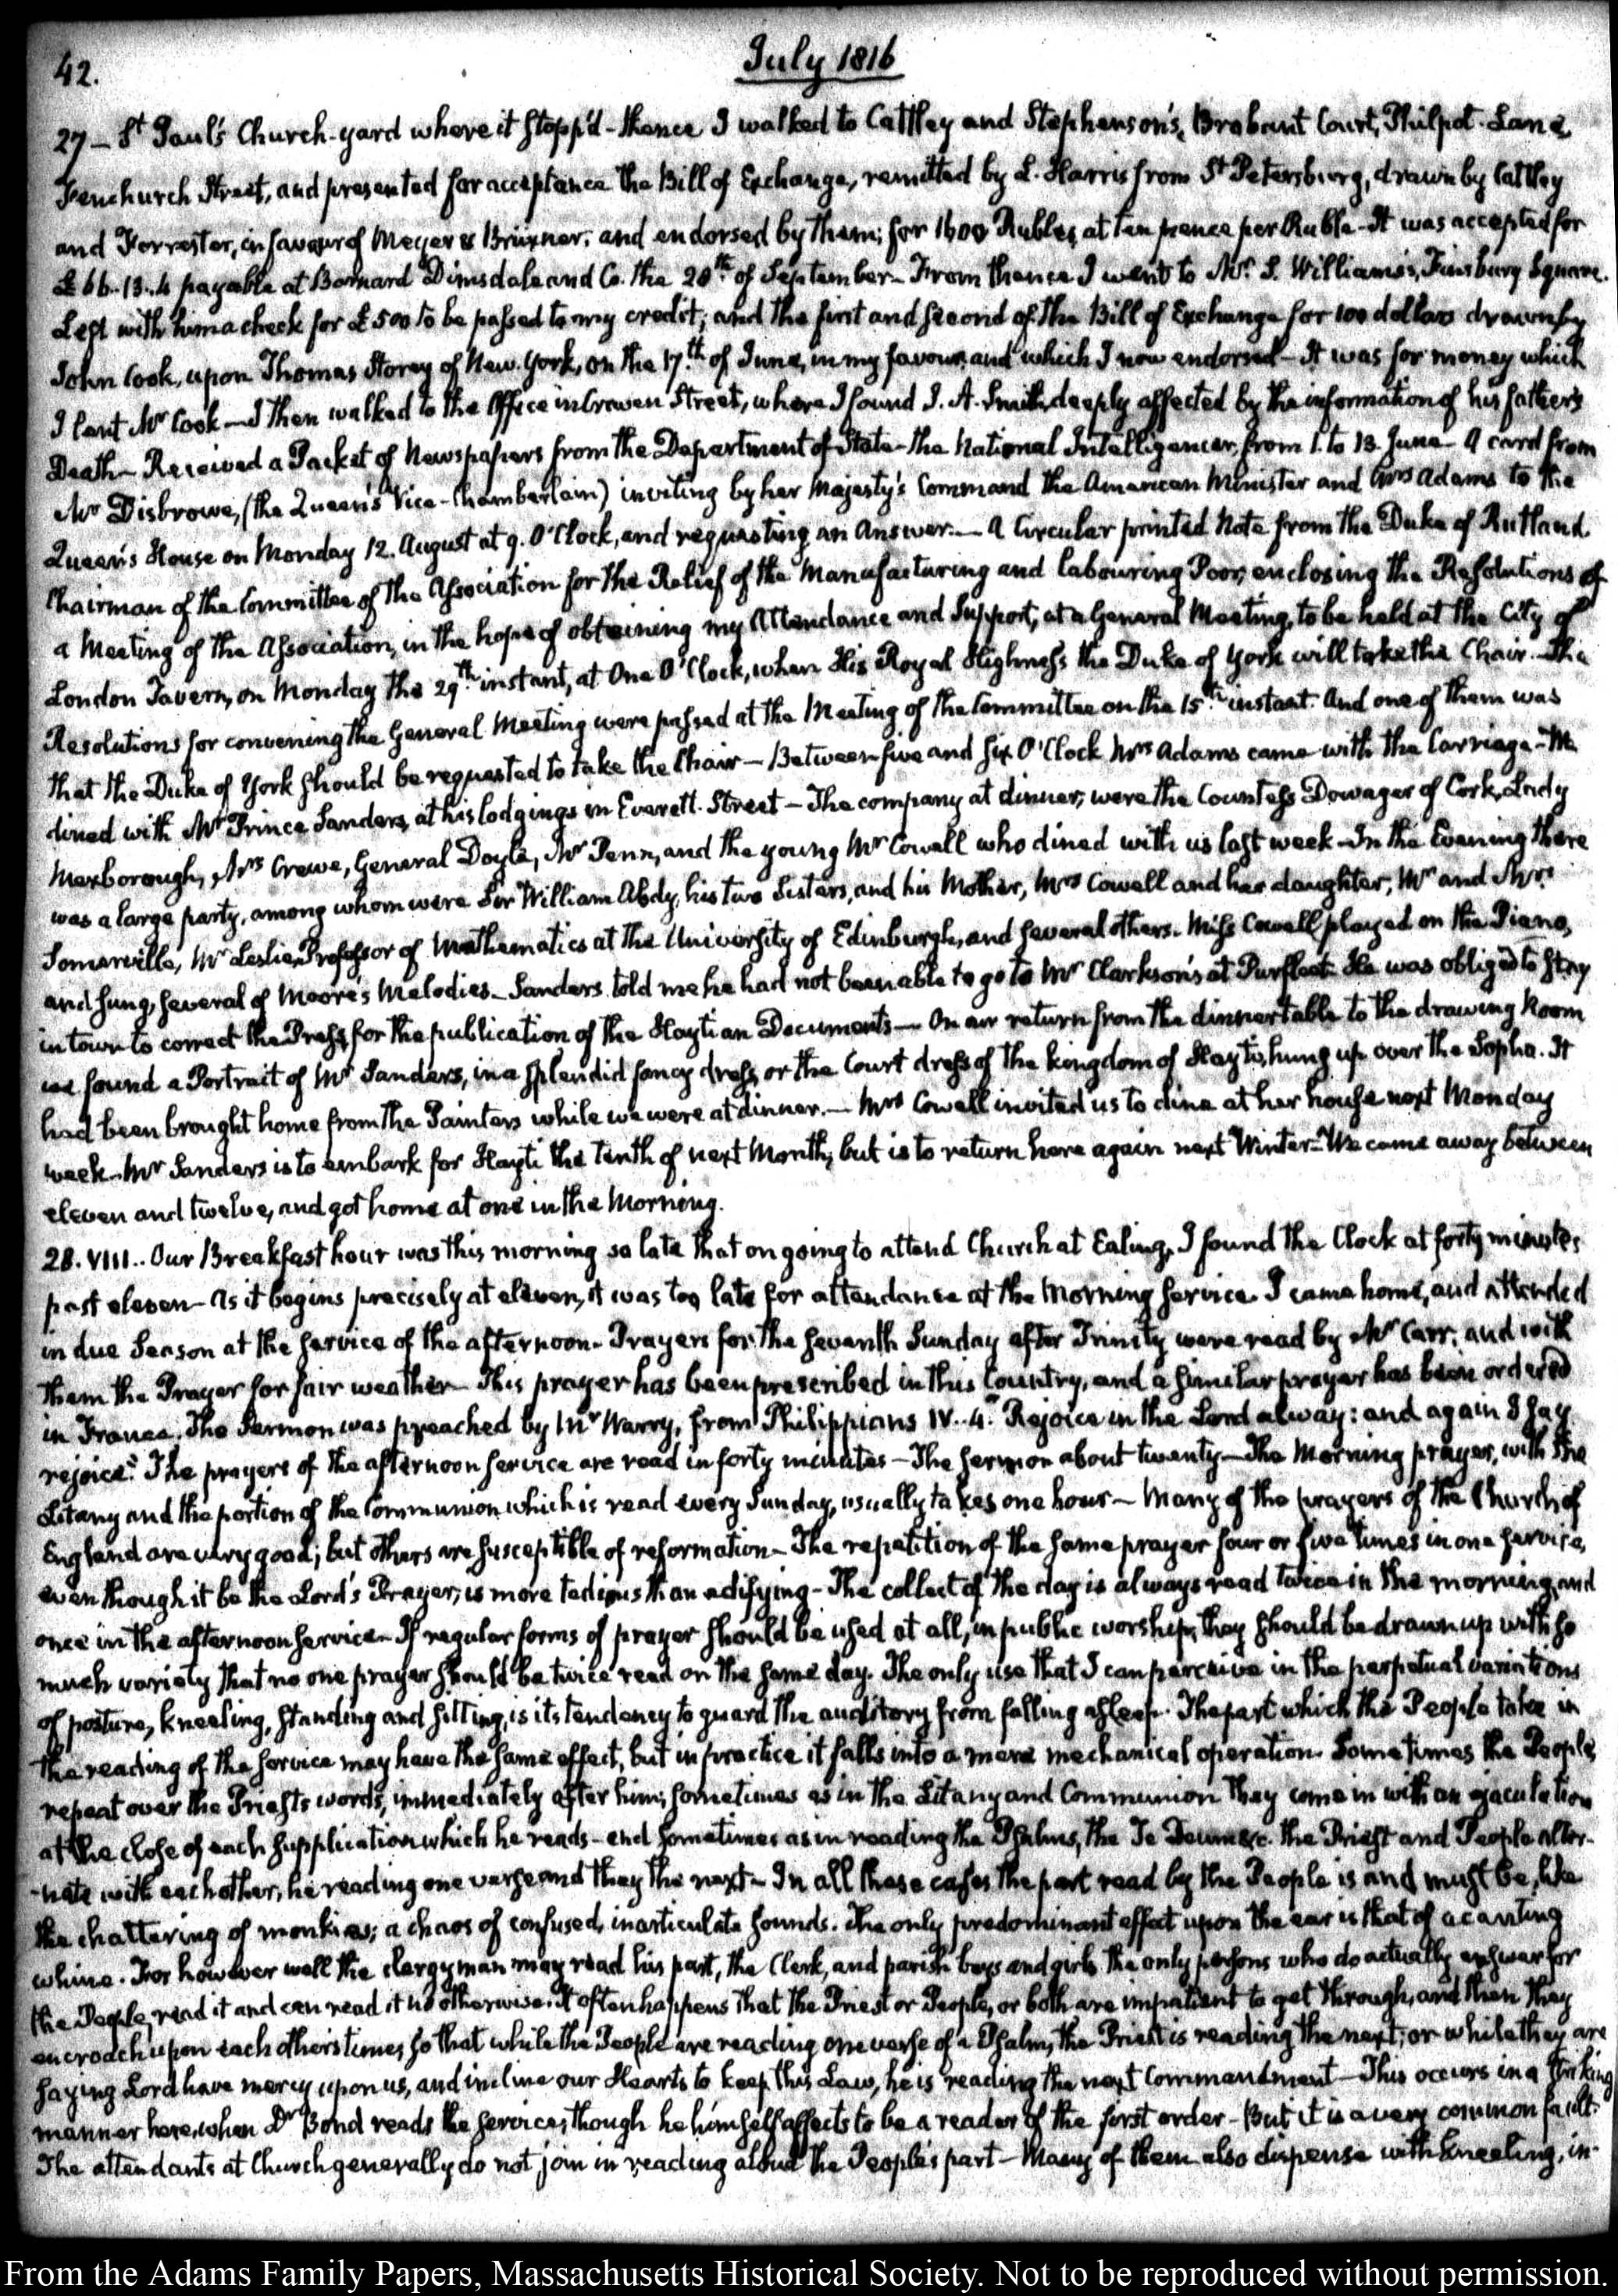 42.
July 1816
27 – St Paul's Church-yard where it stopp'd – thence I walked to Cattley and Stephenson's, Brabant Court, Philpot-Lane
Fenchurch Street, and presented for acceptance the Bill of Exchange, remitted by L. Harris from St Petersburg, drawn by Cattley
and Forrester, in favour of Meyer & Brüxner, and endorsed by them; for 1600 Rubles at ten pence per Ruble – It was accepted for
£66..13..4 payable at Barnard Dimsdale and Co. the 28th of September – From thence I went to Mr. S. Williams's, Finsbury Square.
Left with him a check for £500 to be passed to my credit, and the first and second of the Bill of Exchange for 100 dollars drawn by
John Cook, upon Thomas Storey of New-York, on the 17th of June, in my favour and which I now endorsed – It was for money which
I lent Mr Cook – I then walked to the Office in Craven Street, where I found J. A. Smith, deeply affected by the information of his father's
Death – Received a Packet of Newspapers from the Department of State – the National Intelligencer from 1. to 13. June – A card from
Mr Disbrowe, (the Queen's Vice-Chamberlain) inviting by her Majesty's Command the American Minister and Mrs Adams to the
Queen's House on Monday 12. August at 9. O'Clock, and requesting an answer. – A Circular printed Note from the Duke of Rutland
Chairman of the Committee of the Association for the Relief of the Manufacturing and Labouring Poor, enclosing the Resolutions of
a Meeting of the Association, in the hope of obtaining my Attendance and Support, at a General Meeting, to be held at the City of
London Tavern, on Monday the 29th instant, at One O'Clock, when His Royal Highness the Duke of York will take the Chair. The
Resolutions for convening the General Meeting were passed at the Meeting of the Committee on the 15th instant. And one of them was
that the Duke of York should be requested to take the Chair – Between five and six O'Clock Mrs Adams came with the Carriage – We
dined with Mr Prince Sanders, at his lodgings in Everett-Street – The company at dinner, were the Countess Dowager of Cork, Lady
Mexborough, Mrs Crewe, General Doyle, Mr Penn, and the young Mr Cowell who dined with us last week – In the Evening there
was a large party, among whom were Sir William Abdy, his two Sisters, and his Mother, Mrs Cowell and her daughter, Mr and Mrs
Somerville, Mr Leslie Professor of Mathematics at the University of Edinburgh, and several others. Miss Cowell played on the Piano,
and sung, several of Moore's Melodies – Sanders told me he had not been able to go to Mr Clarkson's at Purfleet. He was obliged to stay
in town to correct the Press, for the publication of the Haytian Documents – On our return from the dinner table to the drawing Room
we found a Portrait of Mr Sanders, in a splendid fancy dress, or the Court dress of the kingdom of Hayti, hung up over the Sopha. It
had been brought home from the Painters while we were at dinner. – Mrs Cowell invited us to dine at her house next Monday
week – Mr Sanders is to embark for Hayti the tenth of next Month, but is to return here again next Winter – We came away between
eleven and twelve, and got home at one in the Morning.
28. VIII.. Our Breakfast hour was this morning so late that on going to attend Church at Ealing, I found the Clock at forty minutes
past eleven – As it begins precisely at eleven, it was too late for attendance at the Morning service. I came home, and attended
in due Season at the service of the afternoon – Prayers for the seventh Sunday after Trinity were read by Mr Carr; and with
them the Prayer for fair weather – This prayer has been prescribed in this Country, and a similar prayer has been ordered
in France. The Sermon was preached by Mr Warry, from Philippians IV..4. "Rejoice in the Lord alway: and again I say
rejoice." The prayers of the afternoon service are read in forty minutes – The sermon about twenty – The Morning prayer, with the
Litany and the portion of the Communion which is read every Sunday, usually takes one hour – Many of the prayers of the Church of
England are very good; but others are susceptible of reformation – The repetition of the same prayer four or five times in one service,
even though it be the Lord's Prayer, is more tedious than edifying – The collect of the day is always read twice in the morning, and
once in the afternoon service – If regular forms of prayer should be used at all, in public worship, they should be drawn up with so
much variety that no one prayer should be twice read on the same day. The only use that I can perceive in the perpetual variations
of posture, kneeling, standing and sitting, is its tendency to guard the auditory from falling asleep. The part which the People take in
the reading of the service may have the same effect, but in practice it falls into a mere mechanical operation. Sometimes the People
repeat over the Priests words, immediately after him; sometimes as in the Litany and Communion they come in with an ejaculation
at the close of each supplication which he reads – and sometimes as in reading the Psalms, the Te Deum &c. the Priest and People alter-
-nate with each other, he reading one verse and they the next – In all these cases the part read by the People is and must be, like
the chattering of monkies; a chaos of confused, inarticulate sounds. The only predominant effect upon the ear is that of a canting
whine. For however well the clergyman may read his part, the Clerk, and parish boys and girls the only persons who do actually answer for
the People, read it and can read it no otherwise. It often happens that the Priest or People, or both are impatient to get through, and then they
encroach upon each others times, so that while the People are reading one verse of a Psalm, the Priest is reading the next; or while they are
saying Lord have mercy upon us, and incline our Hearts to keep this Law, he is reading the next Commandment – This occurs in a striking
manner here, when Dr Bond reads the service, though he himself affects to be a reader of the first order – But it is a very common fault.
The attendants at Church generally do not join in reading aloud the People's part – Many of them also dispense with kneeling, in-
From the Adams Family Papers, Massachusetts Historical Society. Not to be reproduced without permission.